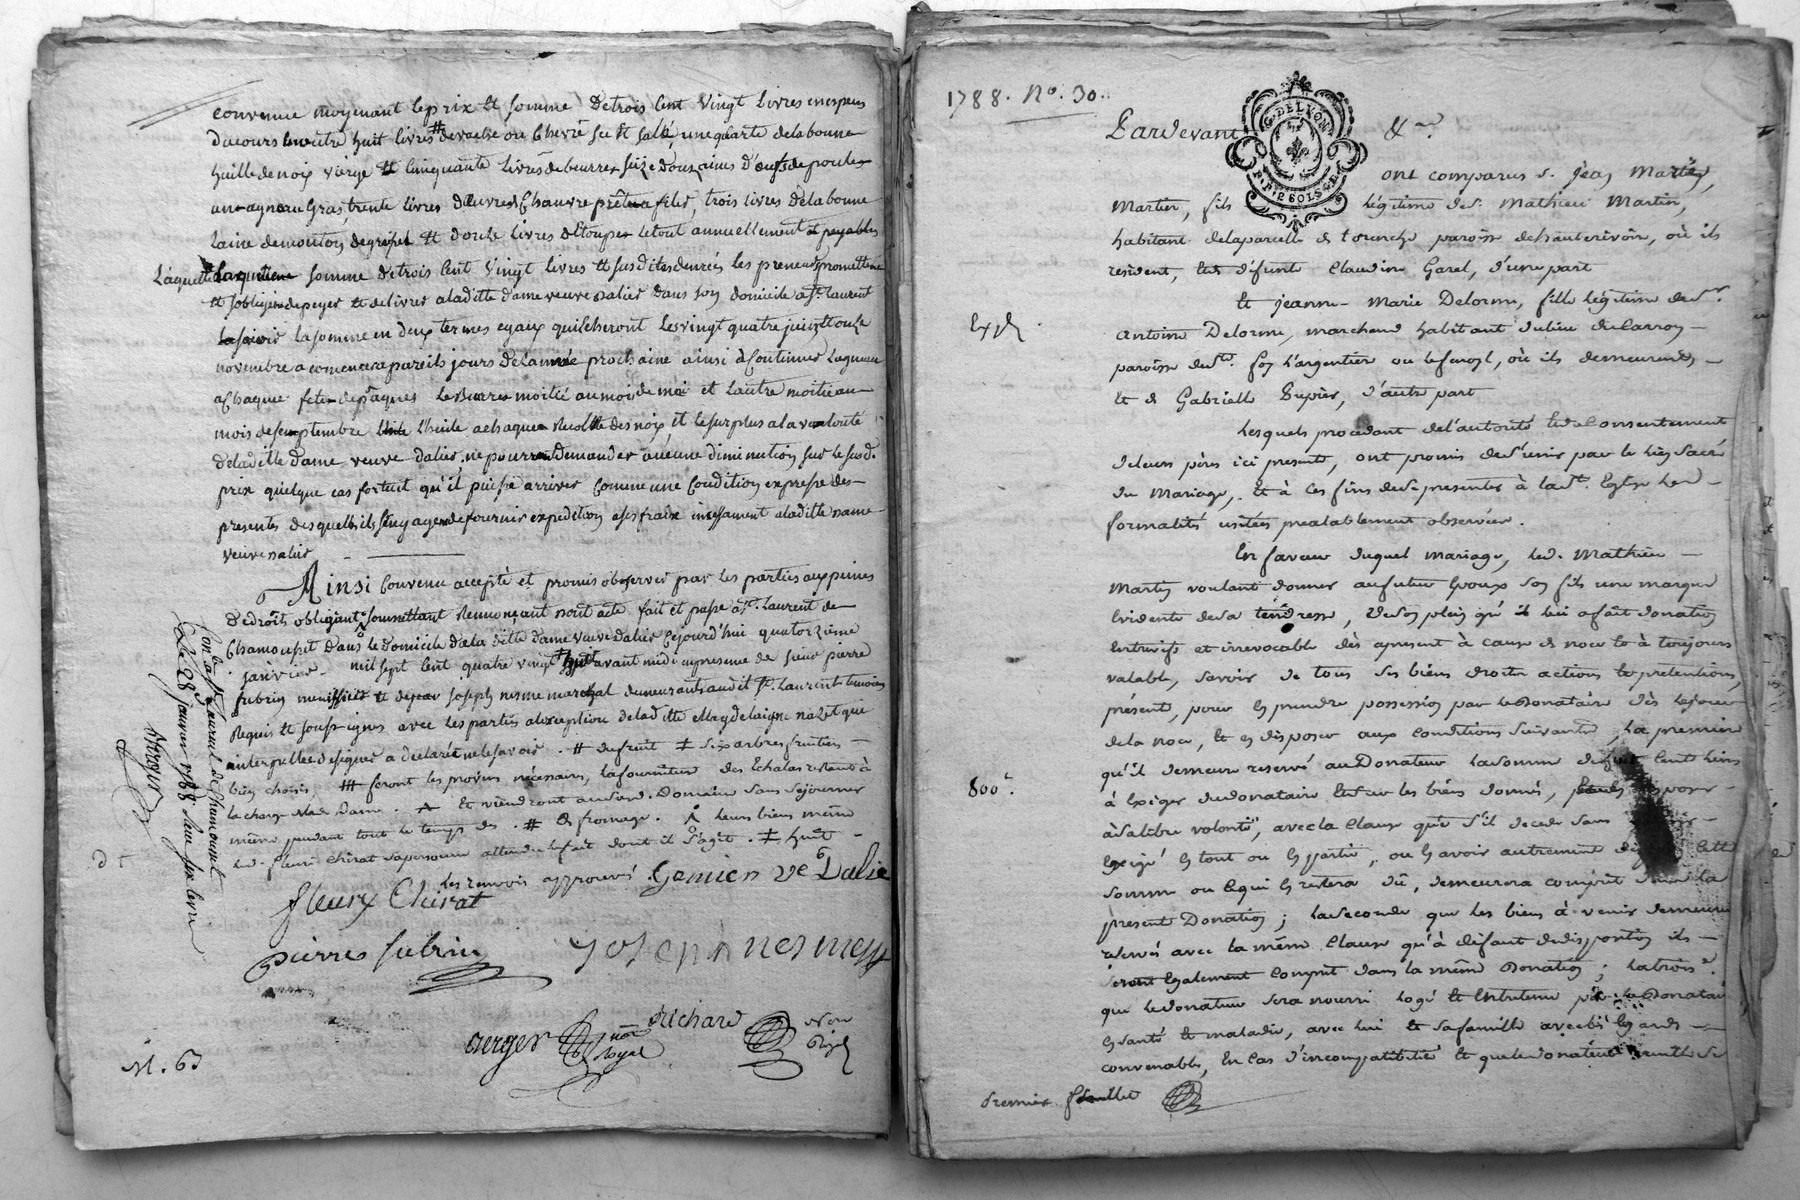 convenue moyenant le prix et somme de trois cent vingt livres en especes
du cours en outre huit livres # de vache ou chevre sec et salé, une quarte de la bonne
huille de noix vierge et cinquante livres de beurre, seize douzaines d'œufs de poules
un agneau gras, trente livres d'œuvres de chanvre prêt a filer, trois livres de la bonne
laine de mouton et douze livres d'étoupes le tout annuellement et payables
Laquelle somme de trois cent vingt livres et susdites denrées les preneurs promettent
et s'obligent de payer et delivrer a laditte dame veuve dalier dans son domicile a st. Laurent
la somme en deux termes egaux qui echeront les vingt quatre juin et onze
novembre a comencer a pareils jours de l'année prochaine ainsi a continuer l'agneau
a chaque fete de pâques le beurre moitié au mois de mai et l'autre moitié au
mois de septembre l'huile a chaque recolte des noix, et le surplus a la volonté
de laditte dame veuve dalier, ne pourront demander aucune diminution sur le susd.
prix quelque cas fortuit qu'il puisse arriver comme une condition expresse des
presentes desquelles ils s'engagent de fournir expedition a ses fraix incessament a laditte dame
veuve dalier
Ainsi convenu accepté et promis observer par les parties aux peines
de droit obligeant soumettant Renonçant dont acte fait et passé a st. Laurent de
Chamousset dans le domicile de la ditte dame veuve dalier cejourd'hui quatorzieme
janvier mil sept cent quatre vingt huit avant midi en presence de sieur pierre
subrin et de sieur joseph nesme marchal demeurants audit st. Laurent temoins
Requis et soussignés avec les parties a l'exception de laditte Magdelaigne nazet que
interpellee de signer a declaré ne le savoir. # de fruit ‡ six arbres fruitiers
bien choisis, seront les provins nécessaires, la fourniture des Echalas restant à
la charge de lad. Dame. et viendront audevd. Domaine sans sejourner
même pendant tout le temps des . # de fromage. leurs biens même
led. fleuri Chirat sa personne attendu le fait dont il s'agit. ‡ huit
Les renvois approuvés. Gemien ve Dalie
fleury Chirat
pierre subrin joseph nesme
Verger not. Royal
Richard
Con.le a St. Laurent de Chamousset
Le 28 janvier 1788. Reçu six livres
Verger
M. 63
1788. No. 30.
Pardevant &a.
G. DE LYON
P. P. 2 SOLS 4 D.
ont comparus s. Jean
Martin, fils légitime de s. Mathieu Martin,
habitant de la parcelle de tourche paroisse de hauterivoire, où ils
resident, et de défunte Claudine Garel, d'une part
Et jeanne-Marie Delorme, fille légitime de sr.
Antoine Delorme, marchand habitant du lieu du Carroy
Exp.
paroisse de ste. foy l'argentier où ils demeurent,
Et de Gabrielle Pupier, d'autre part
Lesquels procedant de l'autorité et du Consentement
de leurs pères ici présents, ont promis de s'unir par le lien sacré
du Mariage, et à ces fins de se presenter à la ste. Eglise les
formalités usitées prealablement observées.
En faveur duquel mariage, led. Mathieu
Martin voulant donner au futur Epoux son fils une marque
Evidente de sa tendresse, de son plein gré il lui a fait donation
Entrevifs et irrevocable dès apresent à cause de noce et à toujours
valable, savoir de tous ses biens droits actions et prétentions,
présent, pour en prendre possession par le Donataire dès le jour
de la noce, et en disposer aux conditions suivantes, La premiere
qu'il demeure reservé au Donateur la somme de huit cent livres
800ᵗᵗ.
à Exiger du donataire et sur les biens donnés, pour en disposer
à sa libre volonté, avec la clause que s'il decede sans
Exigé en tout ou en partie, ou en avoir autrement cette
somme ou ce qui en restera dû, demeurera compris dans la
présente Donation; la seconde que les biens à venir demeurent
réservés avec la même Clause qu'à défaut de disposition ils
seront également compris dans la même Donation; la trois.e
que le donateur sera nourri logé et entretenu par le Donataire
En santé et maladie, avec lui et sa famille avec les Egards
convenables, En cas d'incompatibilité et que le donateur veuille se
Premier feuillet